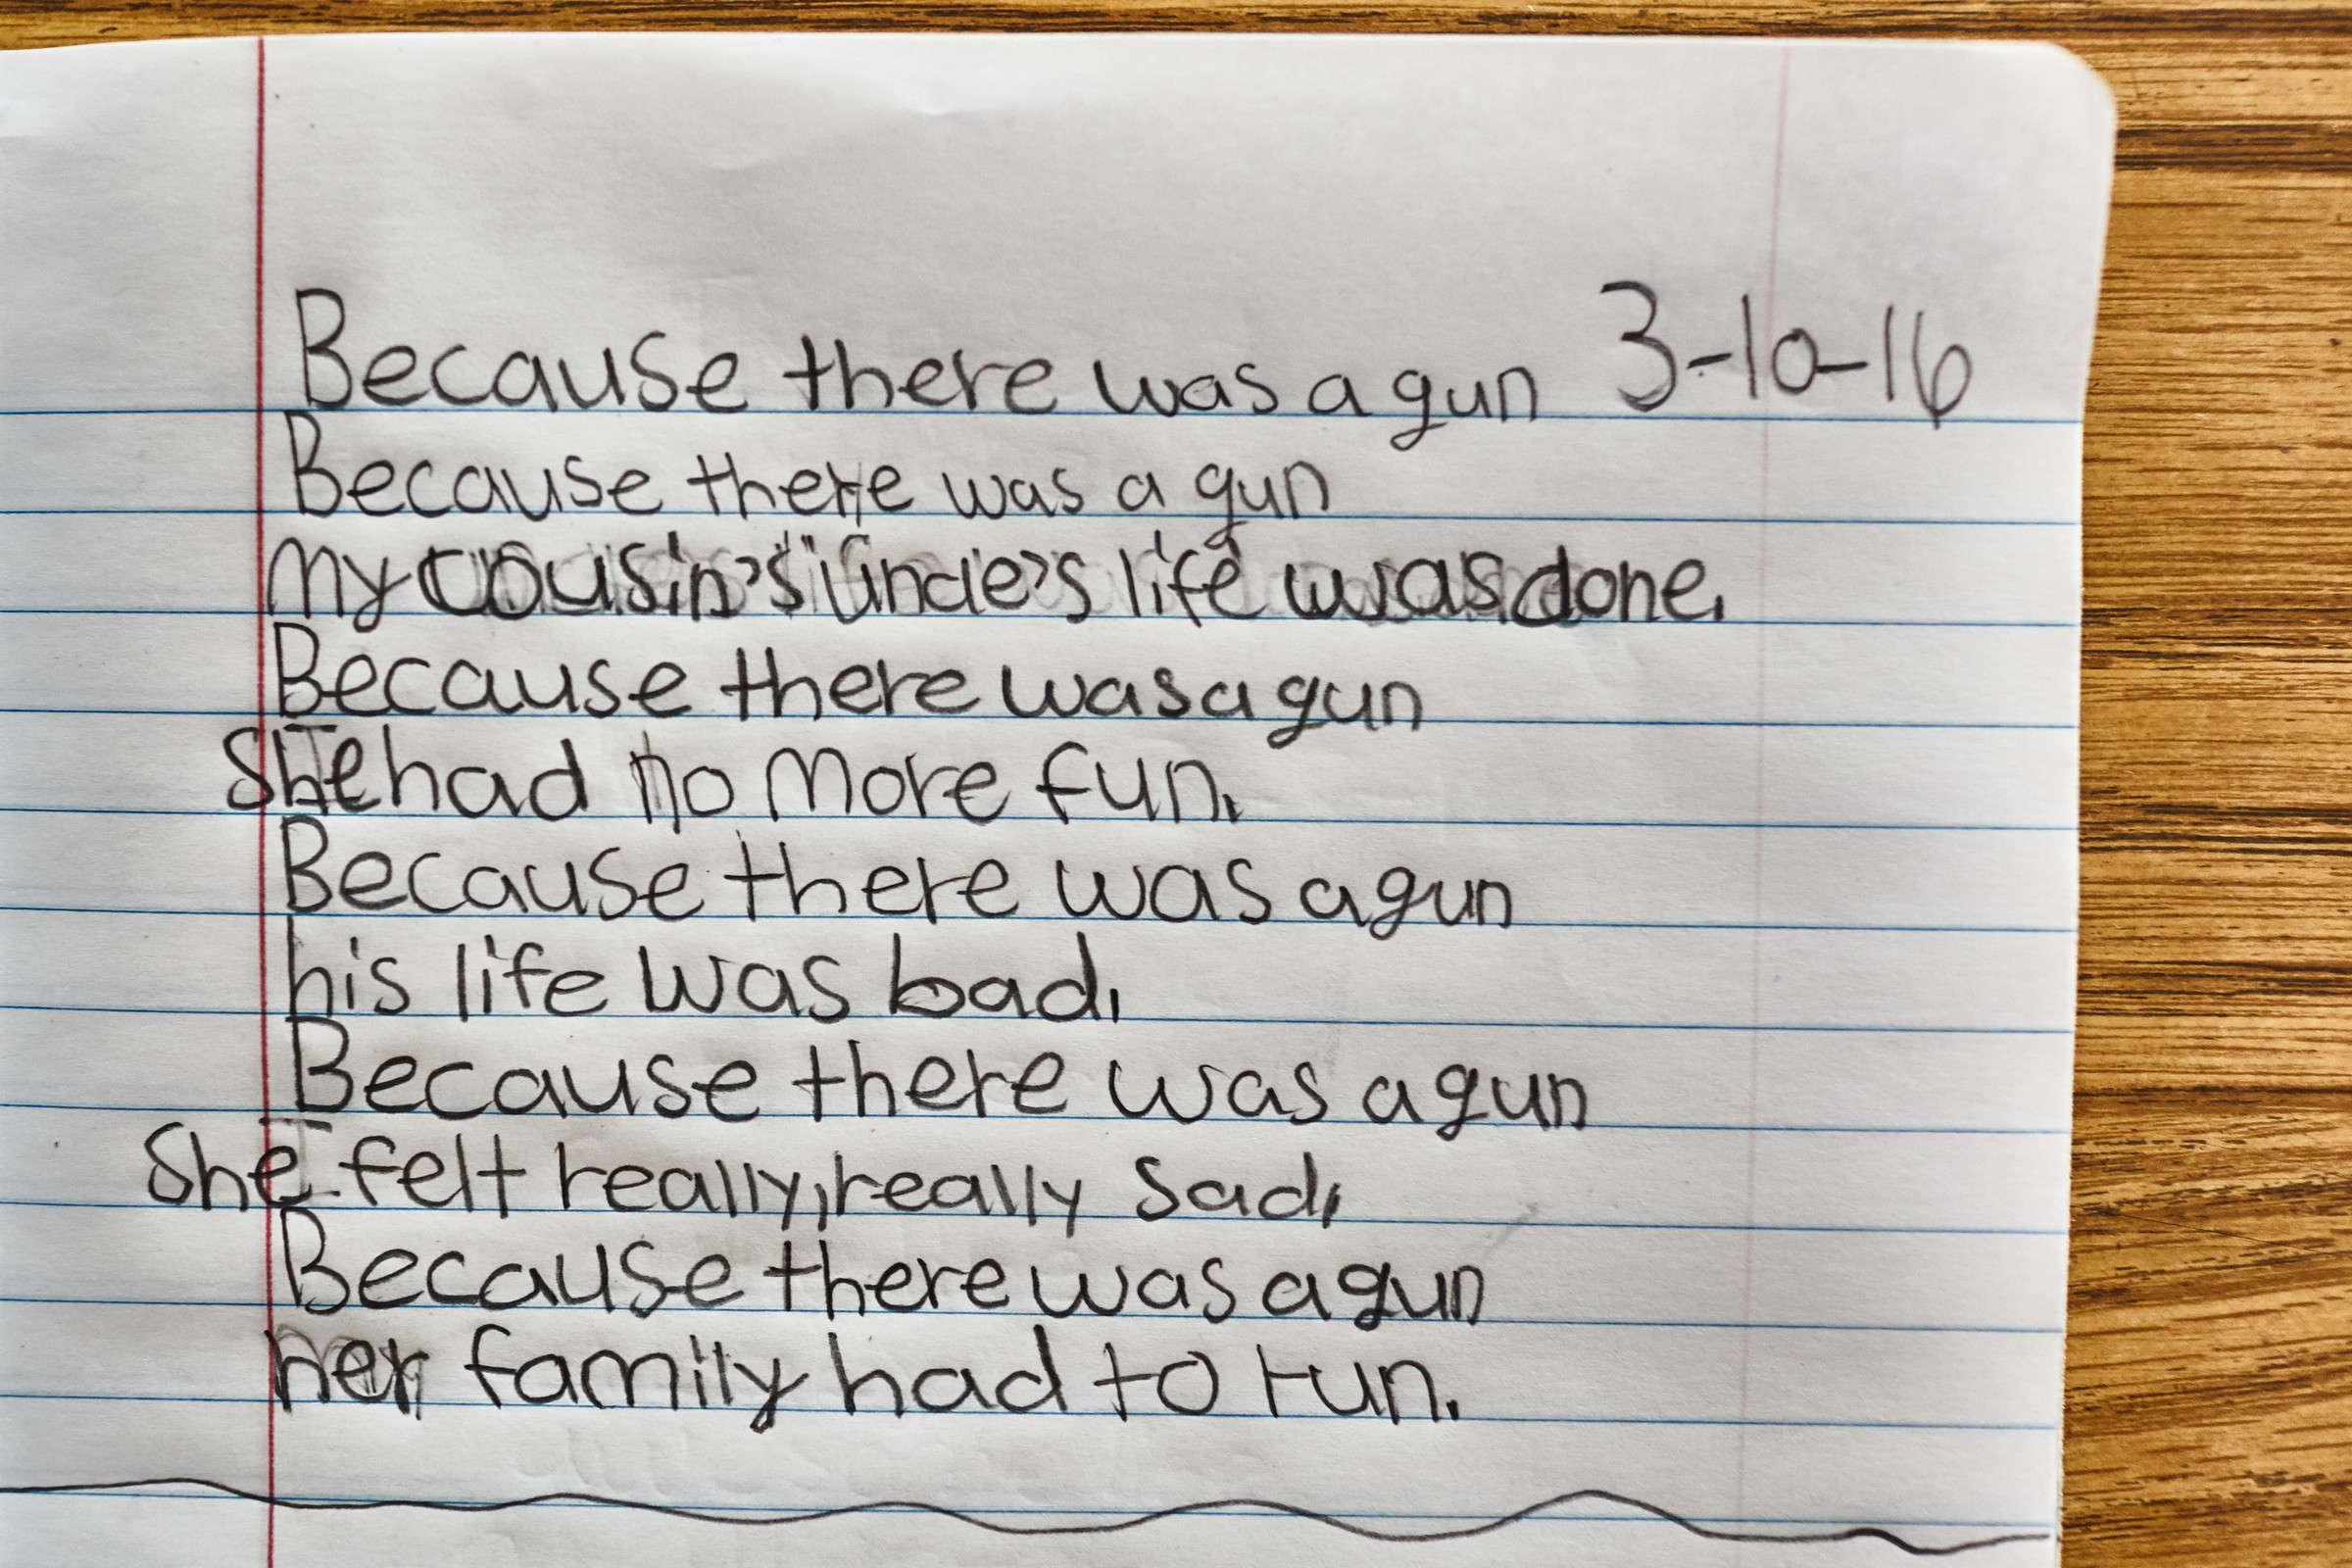 Because there was a gun 3-10-16
Because there was a gun
my cousin's uncle's life was done.
Because there was a gun
She had no more fun.
Because there was a gun
his life was bad,
Because there was a gun
She felt really, really sad,
Because there was a gun
her family had to run.